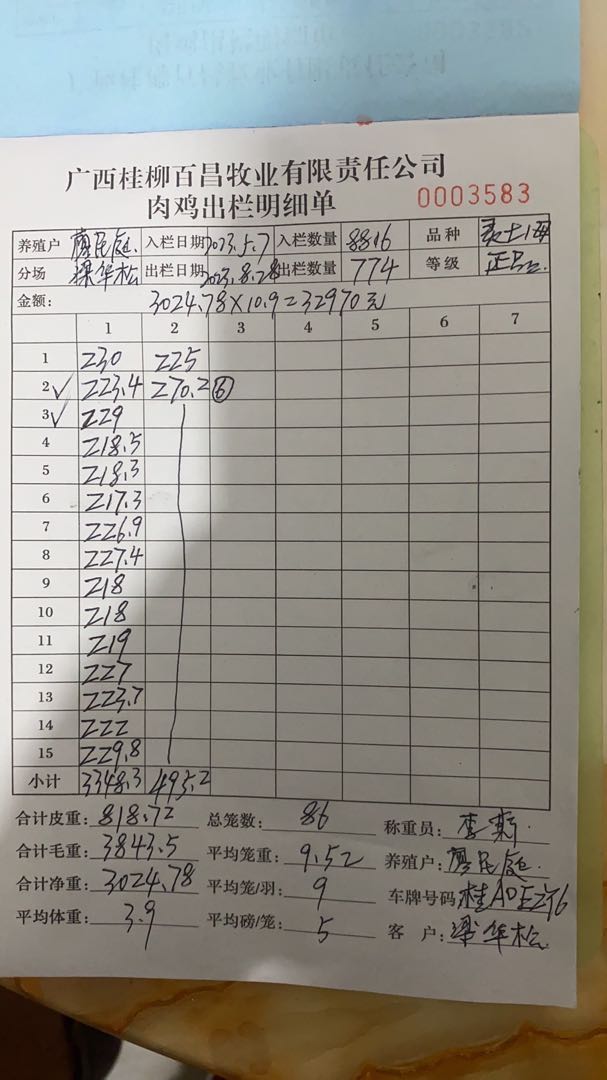 广西桂柳百昌牧业有限责任公司
肉鸡出栏明细单 0003583
养殖户 廖民庭 入栏日期 2023.5.7 入栏数量 8816 品种
分场 梁华松 出栏日期 2023.8.28 出栏数量 774 等级 正品
金额: 3024.78×10.9=32970元
1 2 3 4 5 6 7
1 230 225
2 223.4 270.2 ⑥
3 229
4 218.5
5 218.3
6 217.3
7 226.9
8 227.4
9 218
10 218
11 219
12 227
13 223.7
14 222
15 229.8
小计 3348.3 495.2
合计皮重: 818.72 总笼数: 86 称重员: 李斯
合计毛重: 3843.5 平均笼重: 9.52 养殖户: 廖民庭
合计净重: 3024.78 平均笼/羽: 9 车牌号码: 桂
平均体重: 3.9 平均磅/笼: 5 客 户: 梁华松